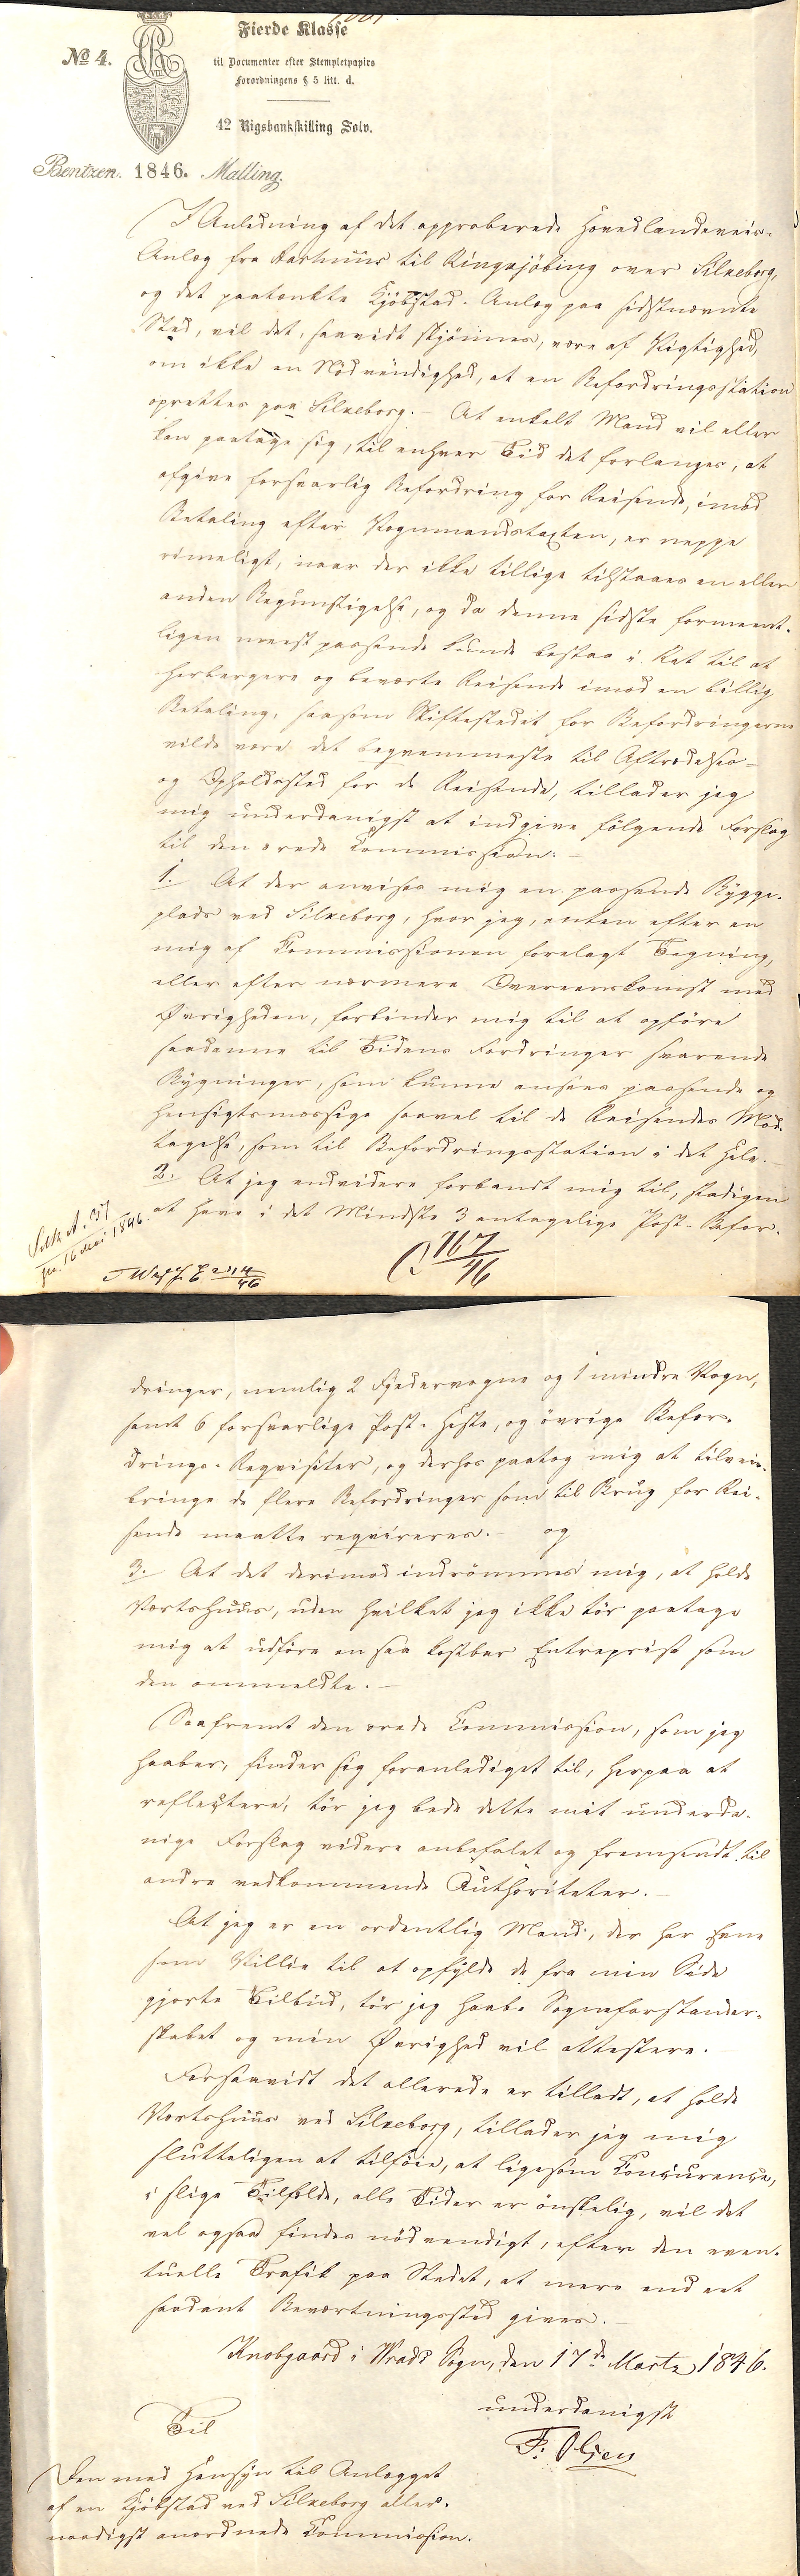 Fierde Klasse
No 4.
til Documenter efter Stempletpapirs
Forordningens § 5 litt. d.
42 Rigsbankskilling Sølv.
Bentzen. 1846. Malling.
I Anledning af det approberede Hovedlandeveis-
Anlæg fra Aarhuus til Ringkjöbing over Silkeborg,
og det paatænkte Kjöbstad-Anlæg paa sidstnævnte
Sted, vil det, saavidt skjönnes, være af Vigtighed,
om ikke en Nödvendighed, at en Befordringsstation
oprettes paa Silkeborg. – At enkelt Mand vil eller
kan paatage sig, til enhver Tid det forlanges, at
afgive forsvarlig Befordring for Reisende, imod
Betaling efter Vognmandstaxten, er neppe
rimeligt, naar der ikke tillige tilstaaes en eller
anden Begunstigelse, og da denne sidste formeent-
ligen meest passende kunde bestaa i Ret til at
herbergere og beværte Reisende imod en billig
Betaling, saasom Skiftestedet for Befordringerne
vilde være det beqvemmeste til Aftrædelses-
og Opholdssted for de Reisende, tillader jeg
mig underdanigst at indgive fölgende Forslag
til den ærede Commission: –
1. At der anvises mig en passende Bygge-
plads ved Silkeborg, hvor jeg, enten efter en
mig af Commissionen forelagt Tegning,
eller efter nærmere Overeenskomst med
Øvrigheden, forbinder mig til at opföre
saadanne til Tidens Fordringer svarende
Bygninger, som kunne ansees passende og
hensigtsmæssige saavel til de Reisendes Mod-
tagelse, som til Befordringsstation i det Hele. –
2. At jeg endvidere forbandt mig til, stadigen
at have i det Mindste 3 antagelige Post-Befor-
16 Mai 1846.
767/46
dringer, nemlig 2 Fjedervogne og 1 mindre Vogn,
samt 6 forsvarlige Post-Heste, og övrige Befor-
drings-Reqvisiter, og derhos paatog mig at tilveie-
bringe de flere Befordringer som til Brug for Rei-
sende maatte reqvireres. – og
3. At det derimod indrömmes mig, at holde
Vertshuus, uden hvilket jeg ikke tör paatage
mig at udföre en saa kostbar Entreprise som
den ommeldte. –
Saafremt den ærede Commission, som jeg
haaber, finder sig foranlediget til, herpaa at
reflectere, tör jeg bede dette mit underda-
nige Forslag videre anbefalet og fremsendt til
andre vedkommende Authoriteter. –
At jeg er en ordentlig Mand, der har Evne
som Villie til at opfylde de fra min Side
gjorte Tilbud, tör jeg haabe Sogneforstander-
skabet og min Øvrighed vil attestere. –
Forsaavidt det allerede er tilladt, at holde
Vertshuus ved Silkeborg, tillader jeg mig
slutteligen at tilföie, at ligesom Concurence,
i slige Tilfælde, alle Tider er önskelig, vil det
vel ogsaa findes nödvendigt, efter den even-
tuelle Trafik paa Stedet, at mere end eet
saadant Beværtningssted gives. –
Knobgaard i Wrads Sogn, den 17de Marts 1846.
underdanigst
F. Olsen
Til
Den med Hensyn til Anlægget
af en Kjöbstad ved Silkeborg aller-
naadigst anordnede Commission.